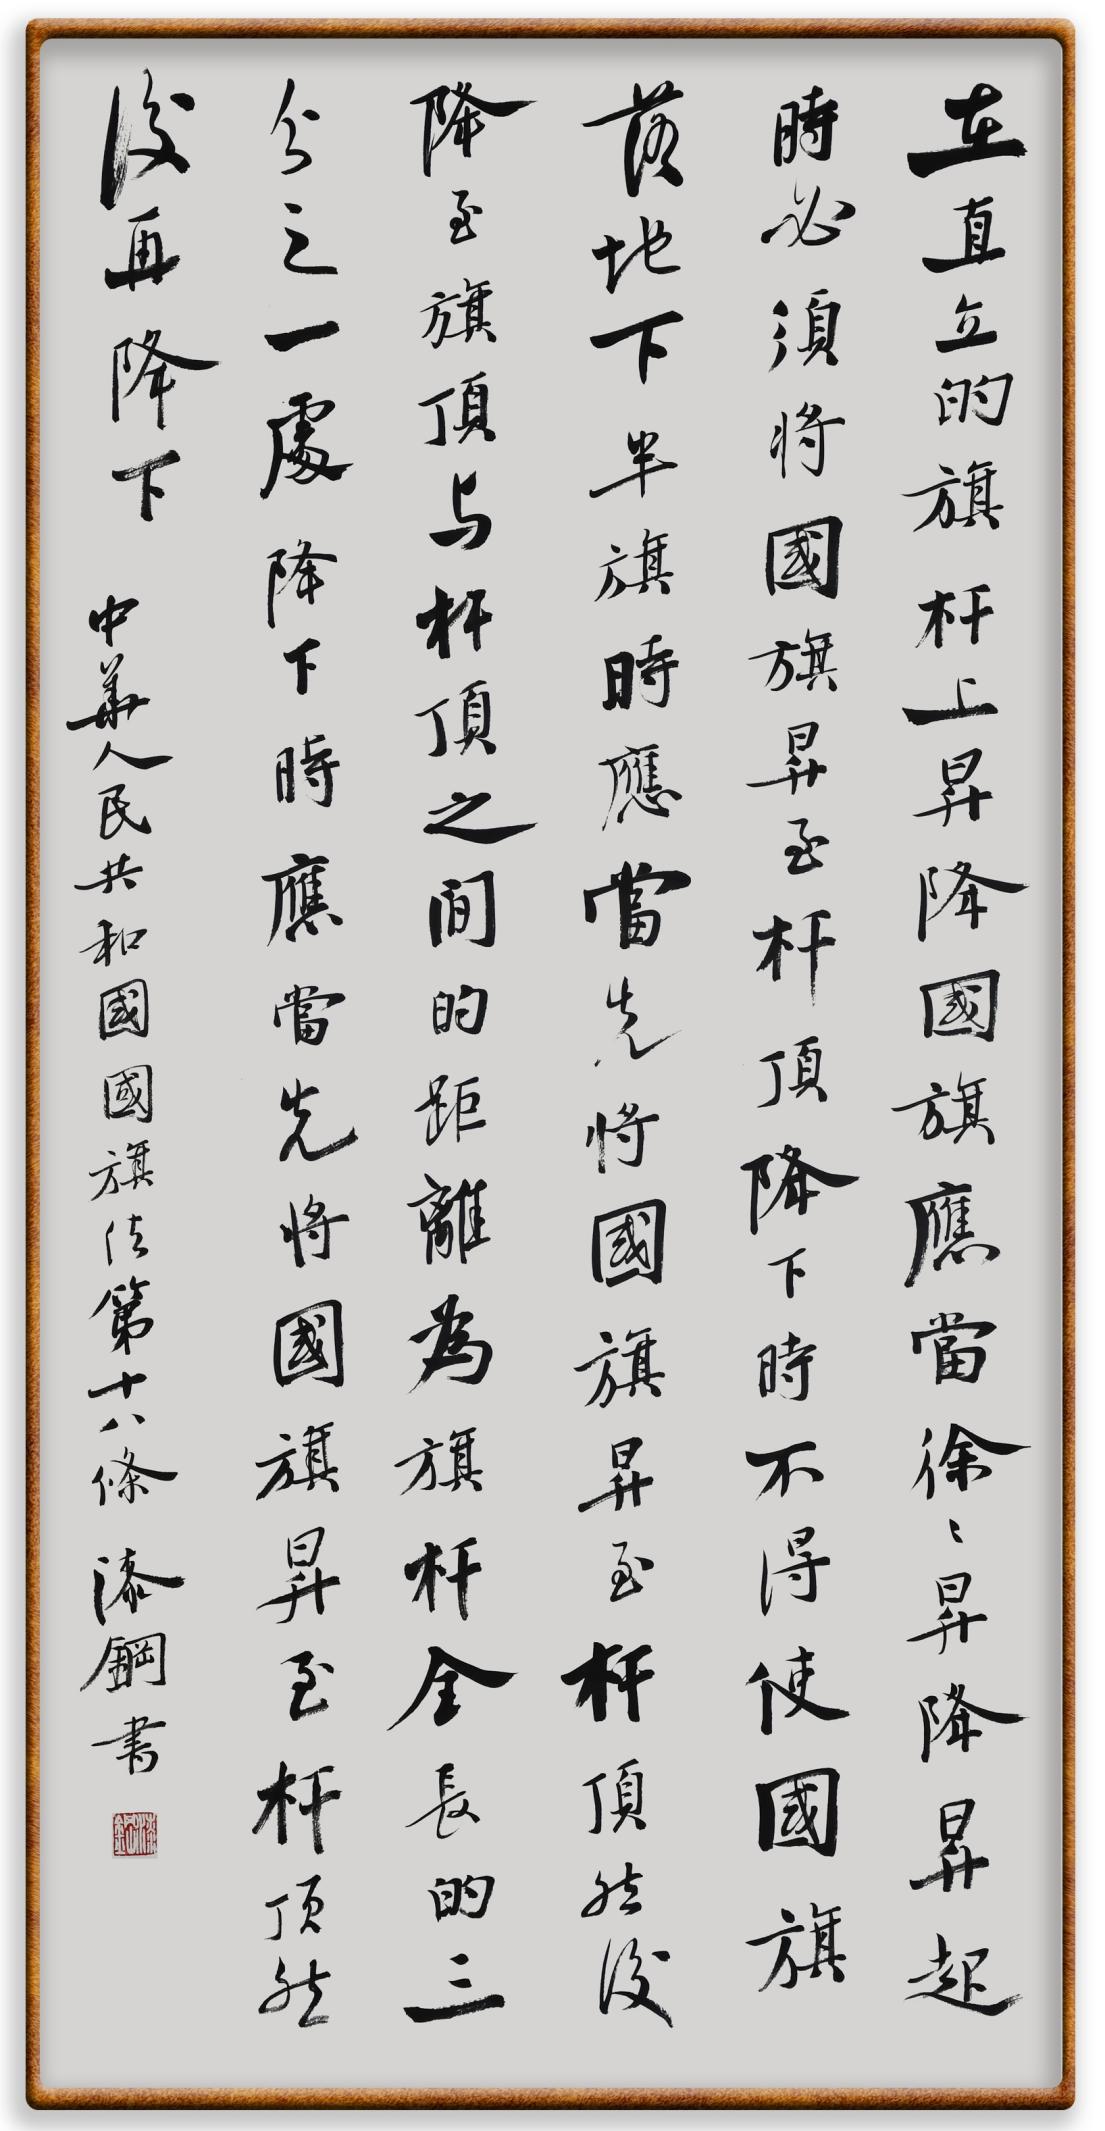 在直立的旗杆上昇降國旗應當徐〻昇降昇起
時必須將國旗昇至杆頂降下時不得使國旗
落地下半旗時應當先將國旗昇至杆頂然後
降至旗頂与杆頂之间的距離為旗杆全長的三
分之一處降下時應當先將國旗昇至杆顶然
後再降下
中華人民共和國國旗法第十八條 漆鋼书